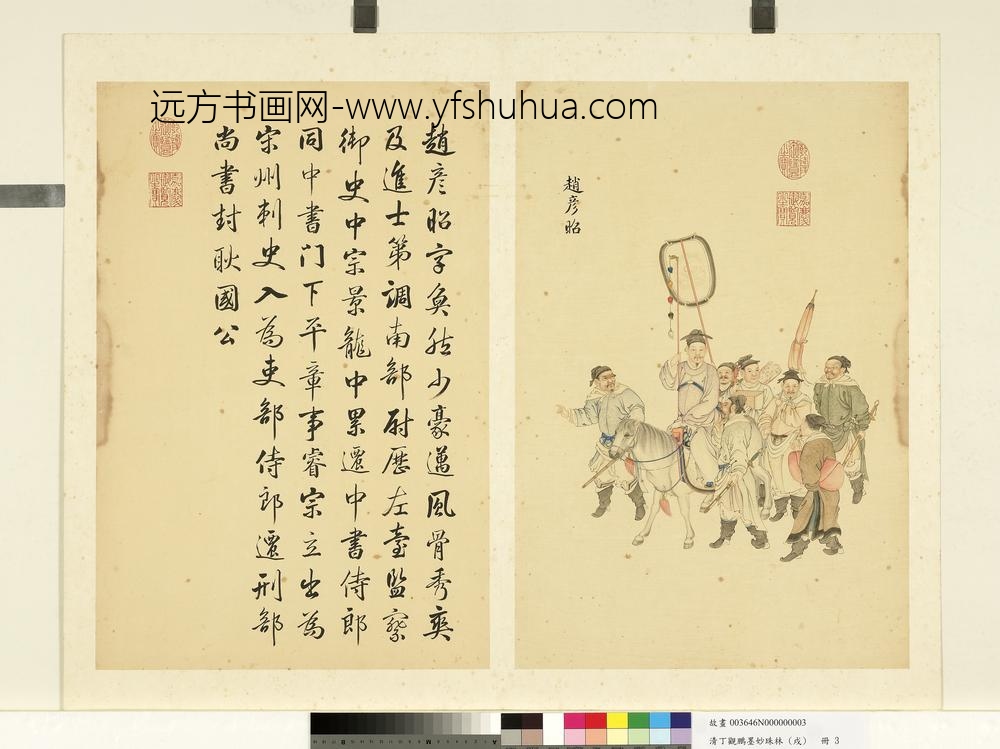 远方书画网-www.yfshuhua.com
趙彦昭
趙彦昭字奐然少豪邁風骨秀爽
及進士第調南部尉歷左臺監察
御史中宗景龍中累遷中書侍郎
同中書門下平章事睿宗立出為
宋州刺史入為吏部侍郎遷刑部
尚書封耿國公
故畫 003646N000000003
清丁觀鵬墨妙珠林（戌） 冊 3